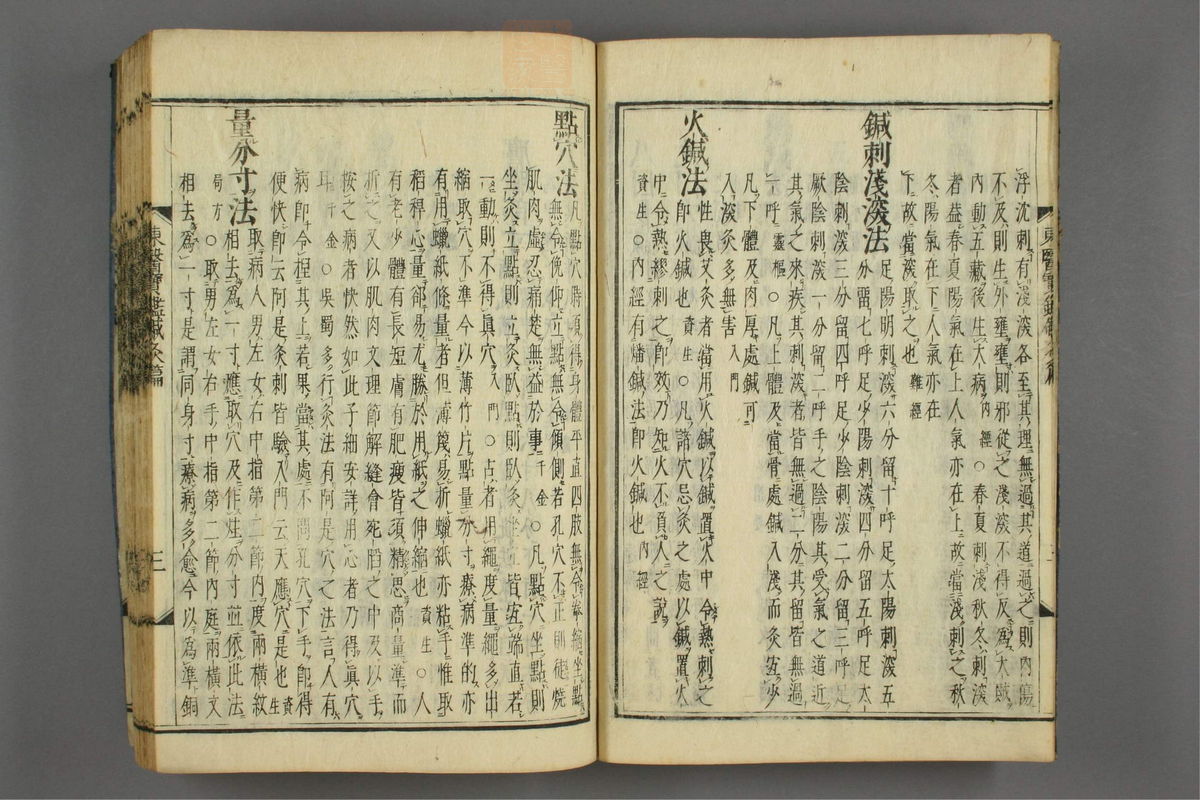 浮沈刺有淺深各至其理無過其道過之則內傷
不及則生外壅壅則邪從之淺深不得反爲大賊
內動五藏後生大病內經○春夏刺淺秋冬刺深
者盖春夏陽氣在上人氣亦在上故當淺刺之秋
冬陽氣在下人氣亦在
下故當深取之也難經
鍼刺淺深法
足陽明刺深六分留十呼足太陽刺深五
分留七呼足少陽刺深四分留五呼足太
陰刺深三分留四呼足少陰刺深二分留三呼足
厥陰刺深一分留二呼手之陰陽其受氣之道近
其氣之來疾其刺深者皆無過二分其留皆無過
一呼靈樞○凡上體及當骨處鍼入淺而灸宜少
凡下體及肉厚處鍼可
入深灸多無害入門
火鍼法
性畏艾灸者當用火鍼以鍼置火中令熱刺之
即火鍼也資生○凡諸穴忌灸之處以鍼置火
中令熱繆刺之即效乃知火不負人之說
資生○內經有燔鍼法即火鍼也內經
點穴法
凡點穴時須得身體平直四肢無令拳縮坐點
無令俛仰立點無令傾側若孔穴不正則徒燒
肌肉虛忍痛楚無益於事千金○凡點穴坐點則
坐灸立點則立灸臥點則臥灸坐立皆宜端直若
一動則不得眞穴入門○古者用繩度量繩多出
縮取穴不準今以薄竹片點量分寸療病準的亦
有用蠟紙條量者但薄篾易折蠟紙亦粘手惟取
稻稈心量却易尤勝於用紙之伸縮也資生○人
有老少體有長短膚有肥瘦皆須精思商量準而
折之又以肌肉文理節解縫會宛陷之中及以手
按之病者快然如此子細安詳用心者乃得眞穴
耳千金○吳蜀多行灸法有阿是穴之法言人有
病即令捏其上若果當其處不問孔穴下手即得
便快即云阿是灸刺皆驗入門云天應穴是也資生
量分寸法
取病人男左女右中指第二節內度兩橫紋
相去爲一寸應取穴及作炷分寸並依此法
局方○取男左女右手中指第二節內庭兩橫文
相去爲一寸是謂同身寸療病多愈今以爲準銅
東醫寶鑑鍼灸篇
三
東醫寶鑑鍼灸篇